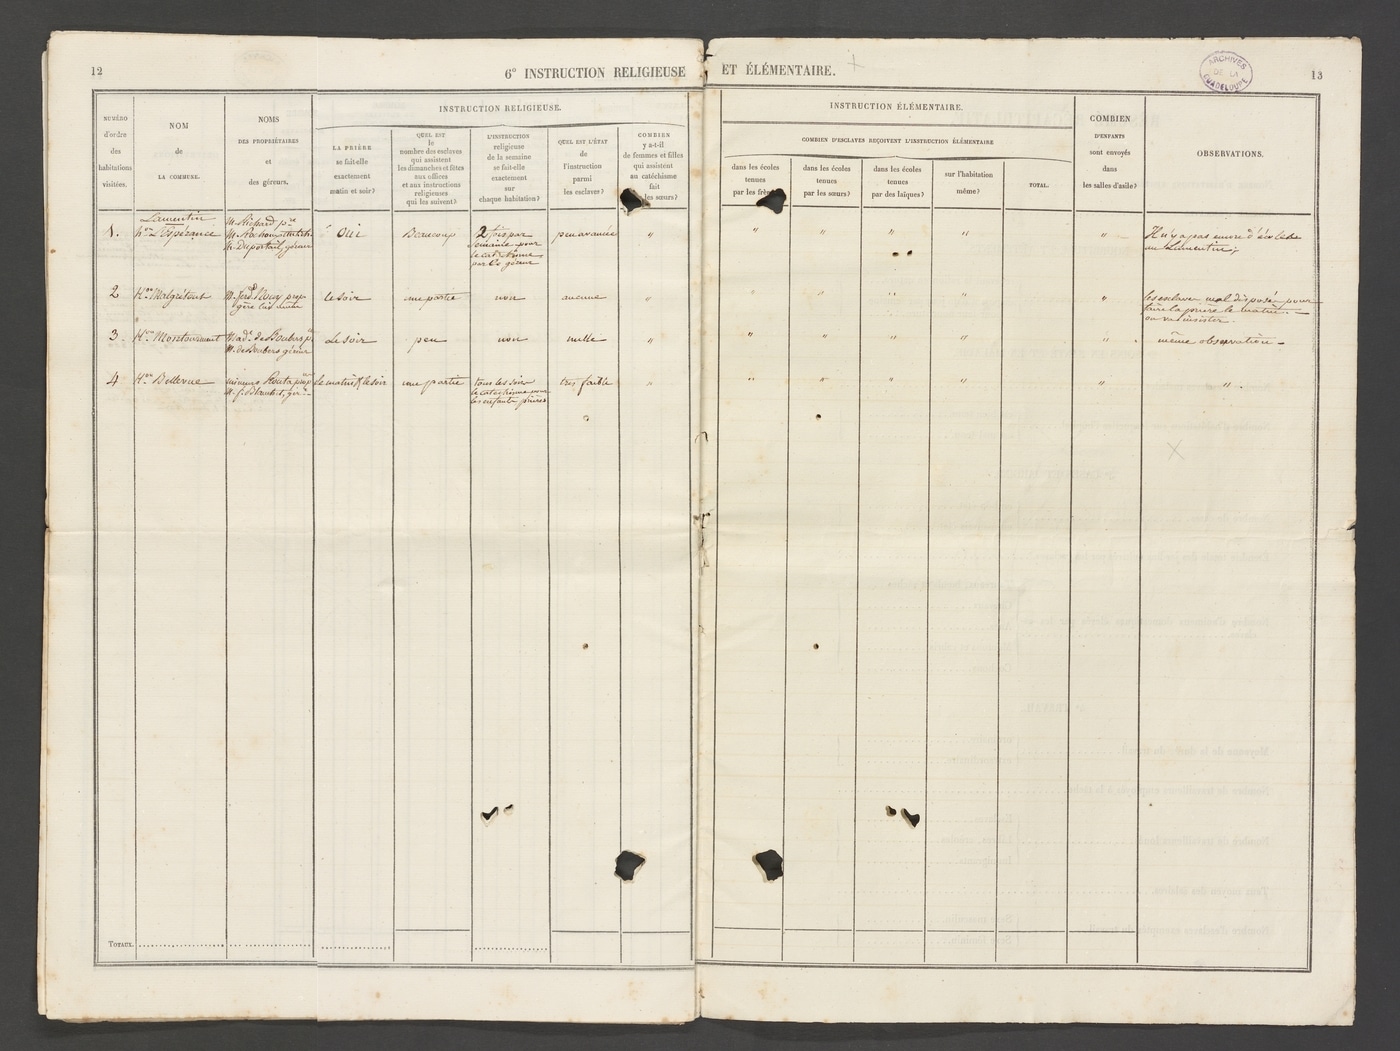 12
6° INSTRUCTION RELIGIEUSE ET ÉLÉMENTAIRE.
ARCHIVES
DE LA
GUADELOUPE
13
NUMÉRO
d'ordre
des
habitations
visitées.
NOM
de
LA COMMUNE.
NOMS
DES PROPRIÉTAIRES
et
des géreurs.
INSTRUCTION RELIGIEUSE.
LA PRIÈRE
se fait-elle
exactement
matin et soir?
QUEL EST
le
nombre des esclaves
qui assistent
les dimanches et fêtes
aux offices
et aux instructions
religieuses
qui les suivent?
L'INSTRUCTION
religieuse
de la semaine
se fait-elle
exactement
sur
chaque habitation?
QUEL EST L'ÉTAT
de
l'instruction
parmi
les esclaves?
COMBIEN
y a-t-il
de femmes et filles
qui assistent
au catéchisme
fait
les sœurs?
INSTRUCTION ÉLÉMENTAIRE.
COMBIEN D'ESCLAVES REÇOIVENT L'INSTRUCTION ÉLÉMENTAIRE
dans les écoles
tenues
par les frères
dans les écoles
tenues
par les sœurs?
dans les écoles
tenues
par des laïques?
sur l'habitation
même?
TOTAL.
COMBIEN
D'ENFANTS
sont envoyés
dans
les salles d'asile?
OBSERVATIONS.
Lamentin
1. hon L'Espérance
M. Richard pre
M. Duportail, géreur
Oui
Beaucoup
2 fois par
Semaine pour
le catéchisme
par le géreur
peu avancée
" " " " " "
Il n'y a pas encore d'école
au Lamentin;
2 Hon Malgrétout
le soir
une partie
non
aucune
" " " " " "
les esclaves mal disposés pour
faire la prière le matin.
on va insister.
3. Hon Montauriant
Made de Boubers p.
M. de Boubers géreur
Le soir
peu
non
nulle
" " " " " "
même observation
4 Hon Bellevue
le matin & le soir
une partie
tous les soirs
le catéchisme pour
les enfants
très faible
" " " " " " "
TOTAUX.